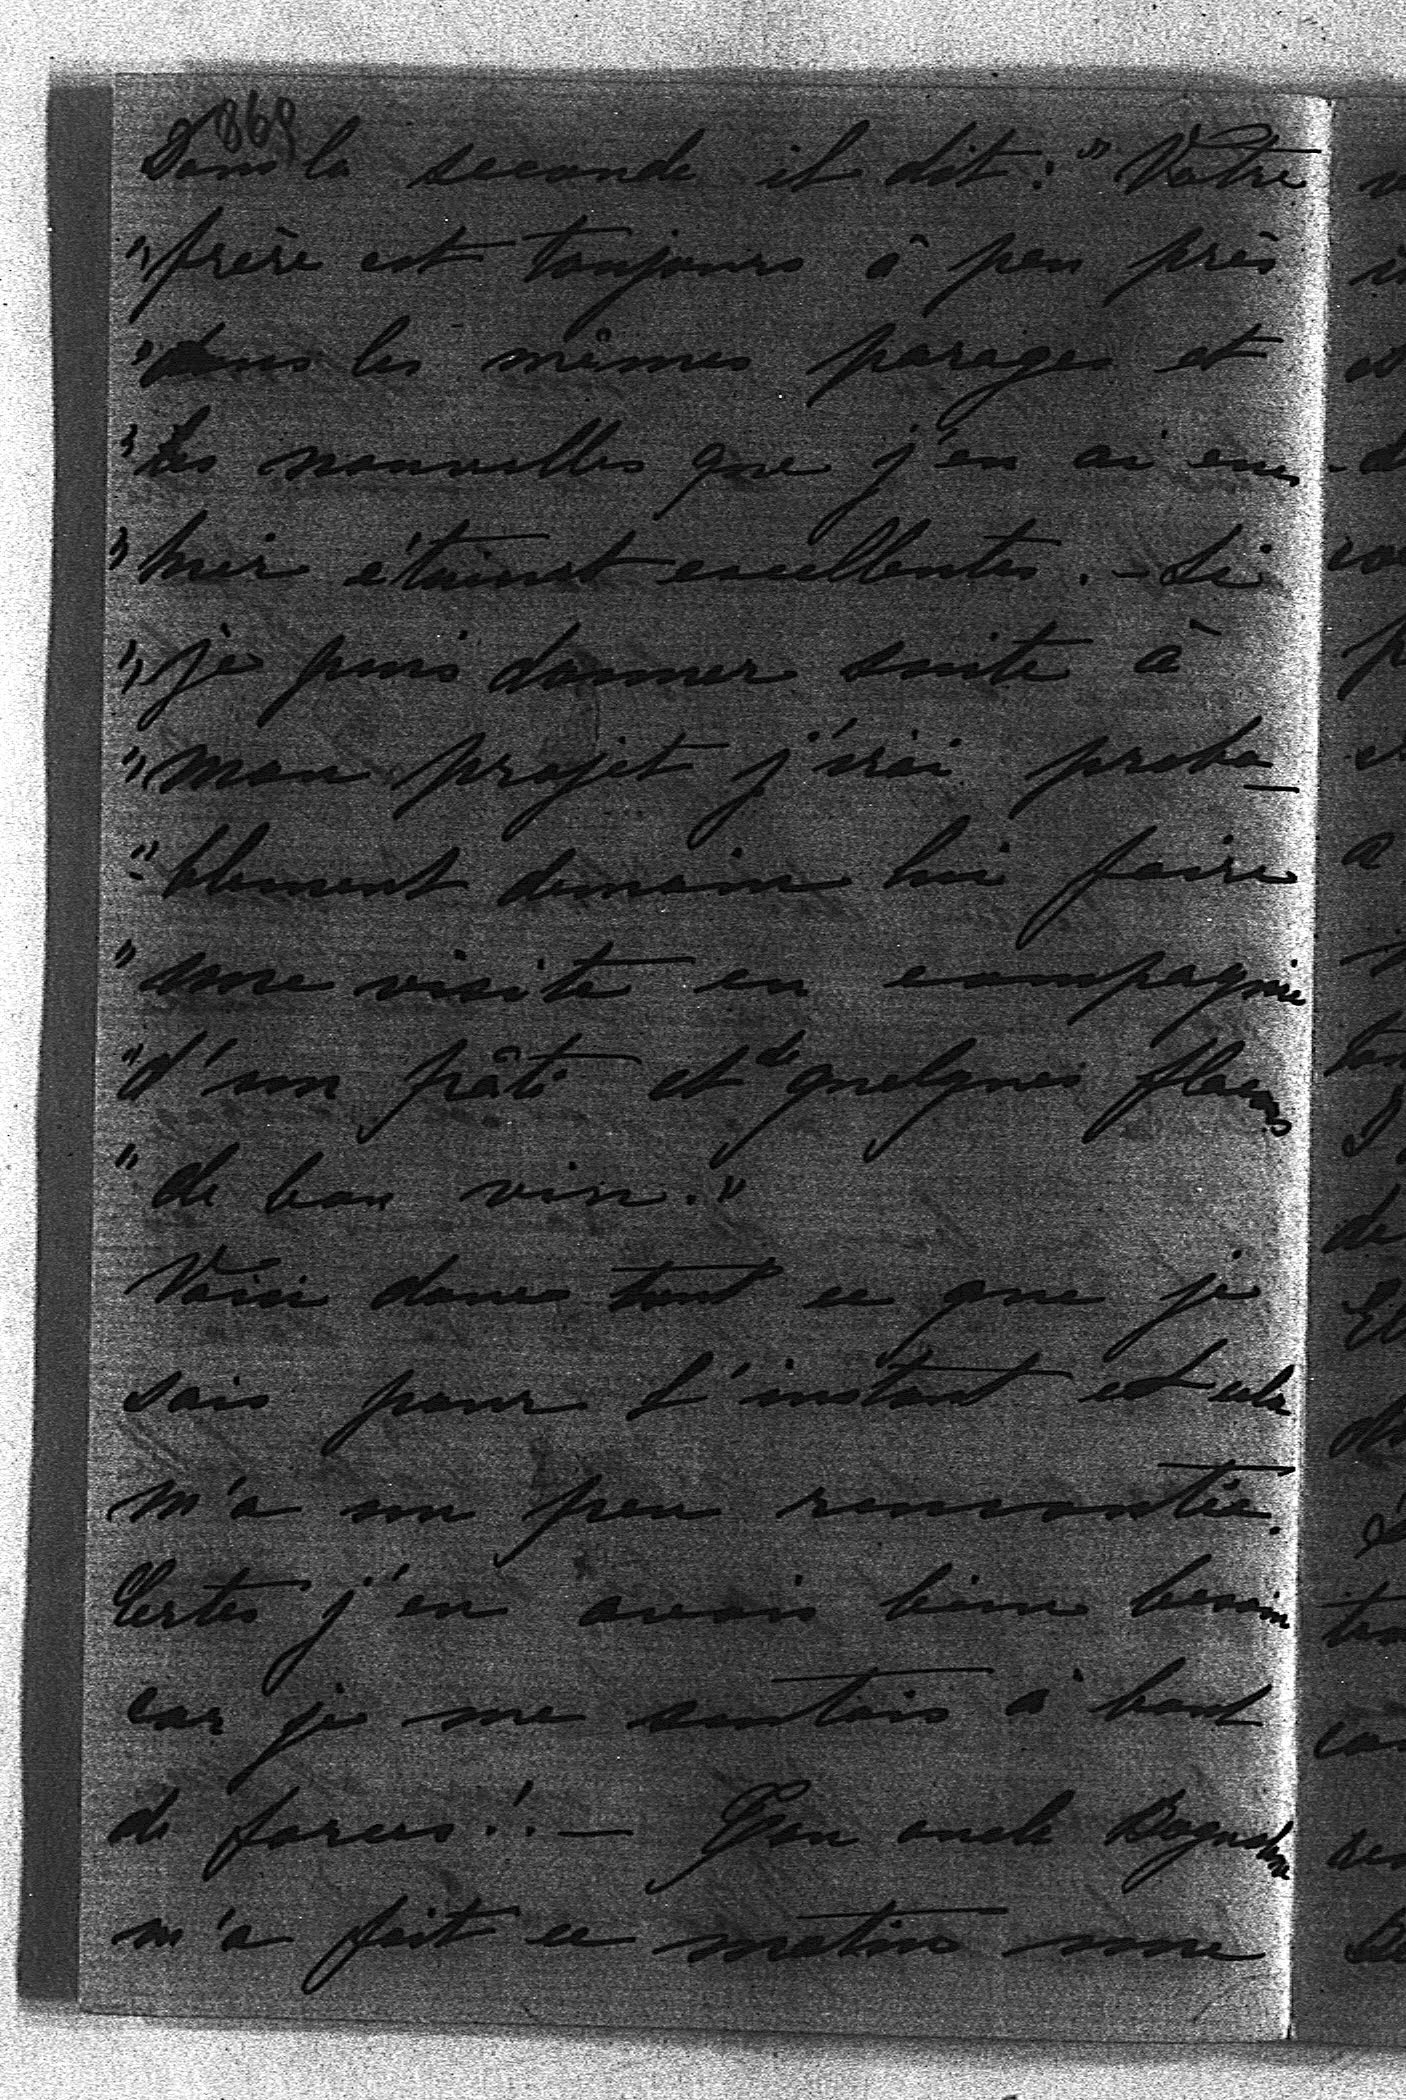 869
Dans la seconde il dit : " Votre
" frère est toujours à peu près
" dans les mêmes parages et
" les nouvelles que j'en ai eues
" hier étaient excellentes. - Si
" je puis donner suite à
" mon projet j'irai proba-
" blement demain lui faire
" une visite en compagnie
" d'un pâté et de quelques flacons
" de bon vin. "
Voici donc tout ce que je
sais pour l'instant et cela
m'a un peu remontée.
Certes j'en avais bien besoin
car je me sentais à bout
de forces !! - Ton oncle
m'a fait ce matin une